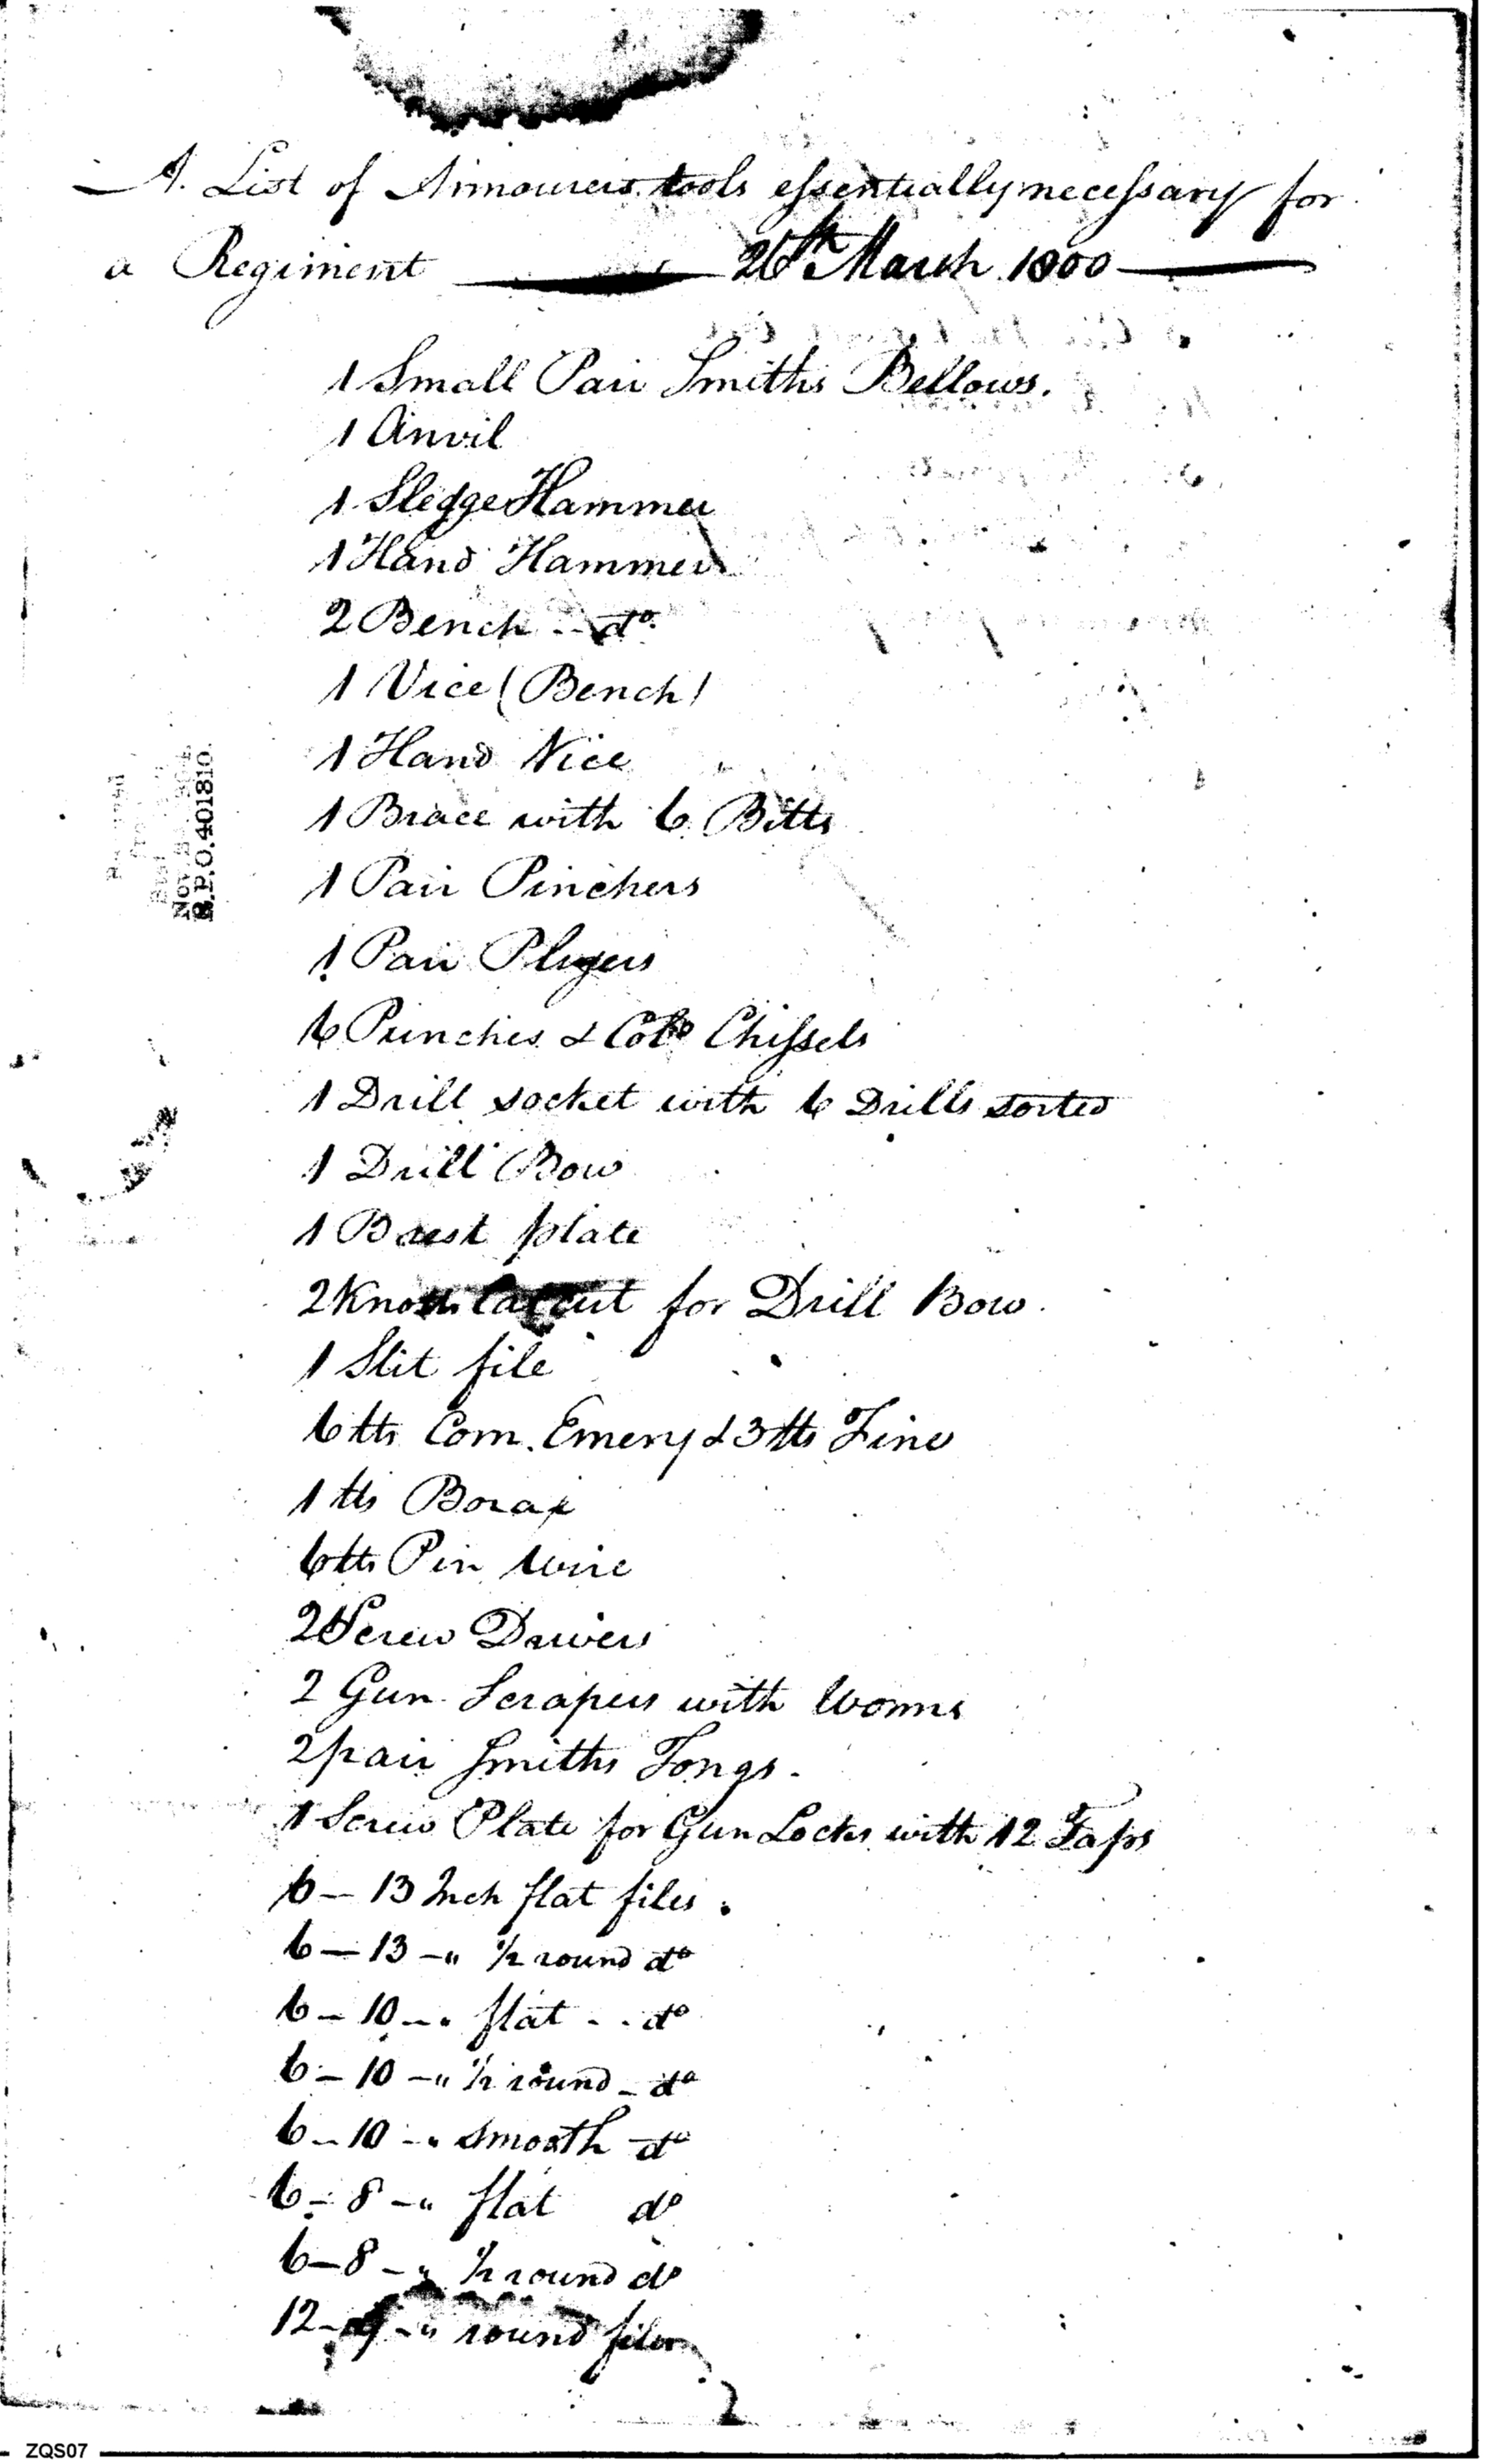 A. List of Armourers tools essentially necessary for
a Regiment 26th March 1800
1 Small Pair Smiths Bellows.
1 Anvil
1 Sledge Hammer
1 Hand Hammer
2 Bench - - do.
1 Vice (Bench)
1 Hand Vice
1 Brace with 6 Bitts
1 Pair Pinchers
1 Pair Plyers
6 Punches & Cold Chissels
1 Drill socket with 6 Drills sorted
1 Drill Bow
1 Brest plate
2 Knotts Catgut for Drill Bow
1 Slit file
6 lbs Com. Emery & 3 lbs Fine
1 lb Borax
6 lbs Pin Wire
2 Screw Drivers
2 Gun Scrapers with Worms
2 pair Smiths Tongs.
1 Screw Plate for Gun Locks with 12 Taps
6 — 13 Inch flat files.
6 — 13 —" ½ round do
6 — 10 —" flat - - do
6 — 10 —" ½ round - do
6 — 10 —" smooth do
6 — 8 —" flat do
6 — 8 —" ½ round do
12 — —" round files
2
R.P.O. 401810.
ZQS07